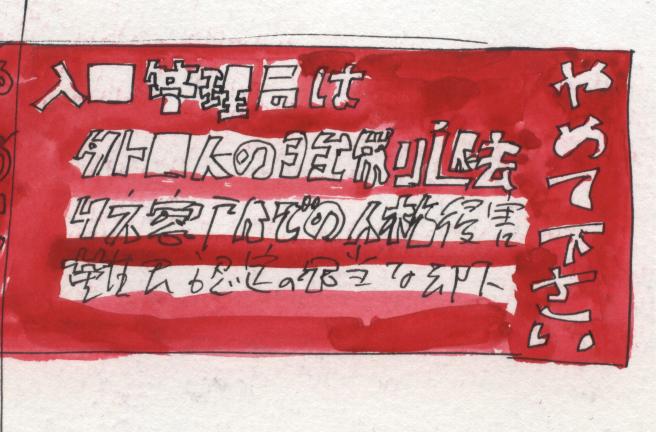 入国管理局は
外国人の強制退去
収容所内での人権侵害
難民認定の不当な却下
やめて下さい